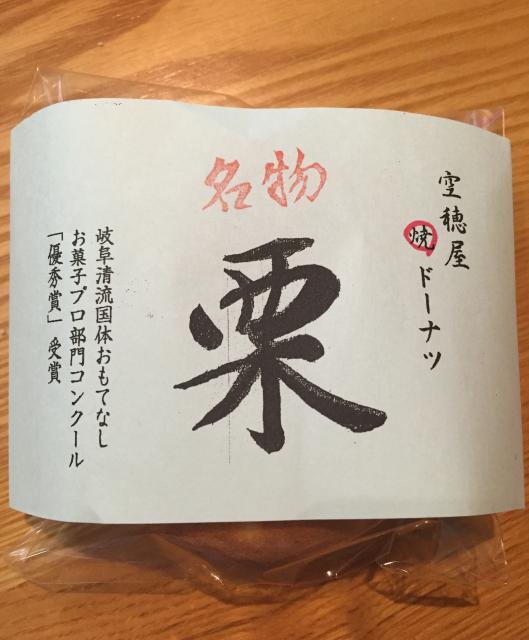 名物
栗
空穂屋
焼ドーナツ
岐阜清流国体おもてなし
お菓子プロ部門コンクール
「優秀賞」受賞